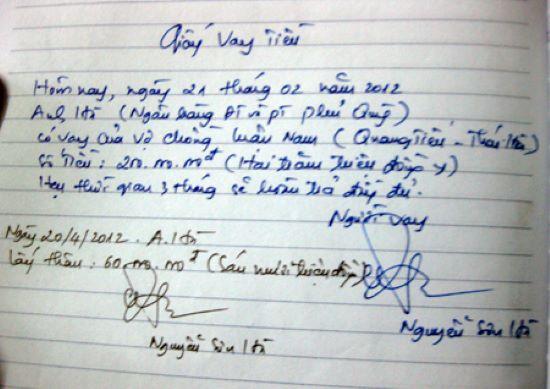 Giấy Vay Tiền
Hôm nay, ngày 21 tháng 02 năm 2012
Anh Hà (Ngân hàng BIDV Phủ Quỳ)
có vay của vợ chồng Luân Nam (Quang Tiến - Thái Hòa)
Số Tiền: 200.000.000đ (Hai trăm triệu đồng y)
Hẹn thời gian 3 tháng sẽ hoàn trả đầy đủ.
Người vay
Ngày 20/4/2012. A. Hà
lấy thêm: 60.000.000đ (Sáu mươi triệu đồng)
Nguyễn Sơn Hà
Nguyễn Sơn Hà